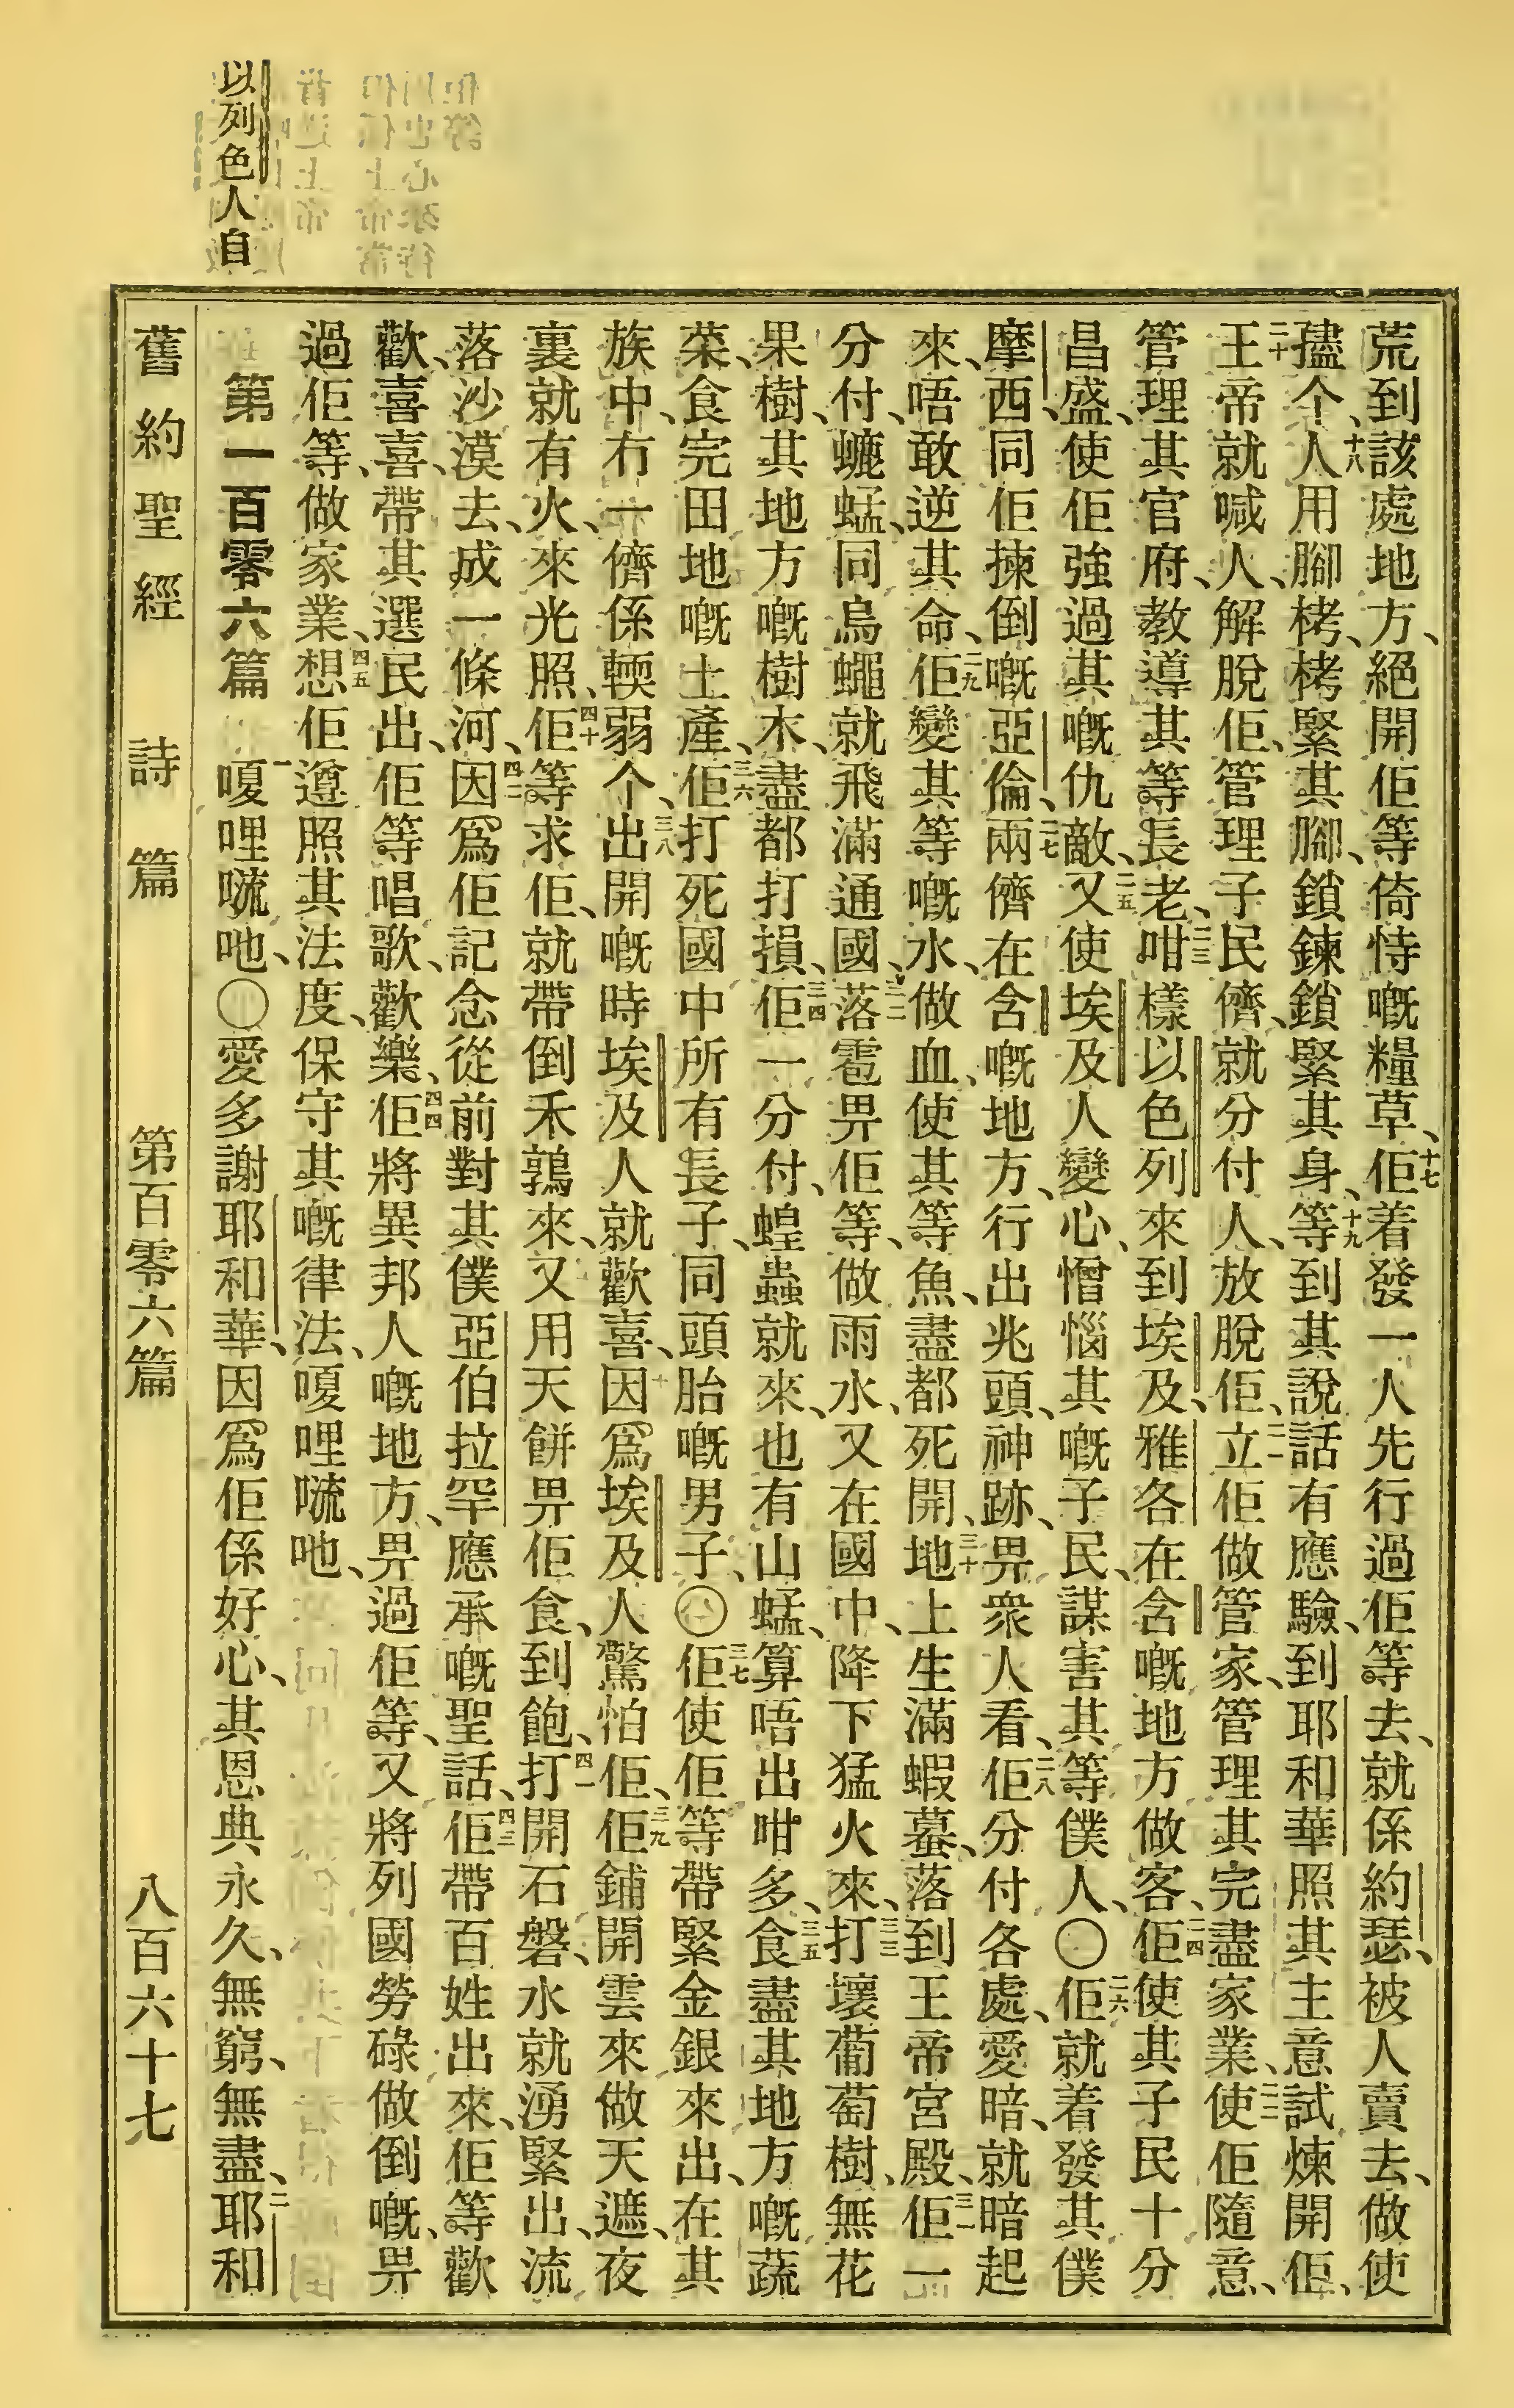 以列色人自
荒到該處地方、絕開佢等倚恃嘅糧草、十七佢着發一人先行過佢等去、就係約瑟、被人賣去、做使
𡥧个、十八人用腳栲、栲緊其腳、鎖鍊鎖緊其身、十九等到其說話有應驗、到耶和華照其主意試煉開佢、
二十王帝就喊人、解脫佢、管理子民儕、就分付人、放脫佢、二一立佢做管家、管理其完盡家業、二二使佢隨意、
管理其官府、教導其等長老、二三咁樣以色列來到埃及、雅各在含嘅地方做客、二四佢使其子民十分
昌盛、使佢強過其嘅仇敵、二五又使埃及人變心憎惱其嘅子民、謀害其等僕人、〇二六佢就着發其僕
摩西、同佢揀倒嘅亞倫、二七兩儕在含嘅地方、行出兆頭、神跡、畀衆人看、二八佢分付各處、愛暗、就暗起
來、唔敢逆其命、二九佢變其等嘅水、做血、使其等魚、盡都死開、三十地上生滿蝦蟇、落到王帝宮殿、三一佢一
分付、螕蜢、同烏蠅就飛滿通國、三二落雹畀佢等、做雨水、又在國中、降下猛火來、三三打壞葡萄樹、無花
果樹、其地方嘅樹木、盡都打損、三四佢一分付、蝗蟲就來、也有山蜢、算唔出咁多、三五食盡其地方嘅蔬
菜、食完田地嘅土產、三六佢打死國中所有長子、同頭胎嘅男子、〇三七佢使佢等帶緊金銀來出、在其
族中、冇一儕係輭弱个、三八出開嘅時、埃及人就歡喜、因爲埃及人驚怕佢、三九佢鋪開雲來做天遮、夜
裏就有火、來光照、四十佢等求佢、就帶倒禾鶉來、又用天餅畀佢食、到飽、四一打開石磐、水就湧緊出、流
落沙漠去、成一條河、四二因爲佢記念從前對其僕亞伯拉罕應承嘅聖話、四三佢帶百姓出來、佢等歡
歡、喜喜、帶其選民出、佢等唱歌、歡樂、四四佢將異邦人嘅地方、畀過佢等、又將列國勞碌做倒嘅、畀
過佢等、做家業、四五想佢遵照其法度、保守其嘅律法、嗄哩嚧吔、
第一百零六篇 一嗄哩嚧吔、〇愛多謝耶和華、因爲佢係好心、其恩典永久、無窮、無盡、二耶和
舊約聖經 詩篇 第百零六篇 八百六十七